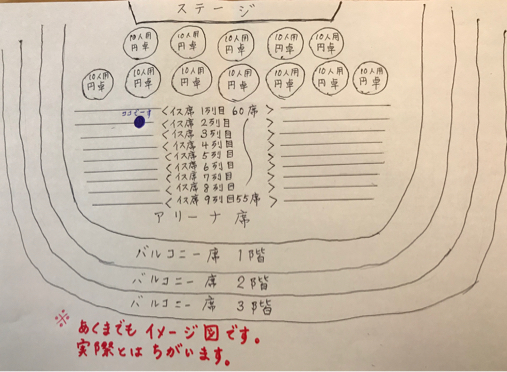 ステージ
10人用 円卓
10人用 円卓
10人用 円卓
10人用 円卓
10人用 円卓
10人用 円卓
10人用 円卓
10人用 円卓
10人用 円卓
10人用 円卓
10人用 円卓
ココでーす
<イス席 1列目 60席>
<イス席 2列目>
<イス席 3列目>
<イス席 4列目>
<イス席 5列目>
<イス席 6列目>
<イス席 7列目>
<イス席 8列目>
<イス席 9列目55席>
アリーナ席
バルコニー席 1階
バルコニー席 2階
バルコニー席 3階
※ あくまでも イメージ図です。
実際とは ちがいます。